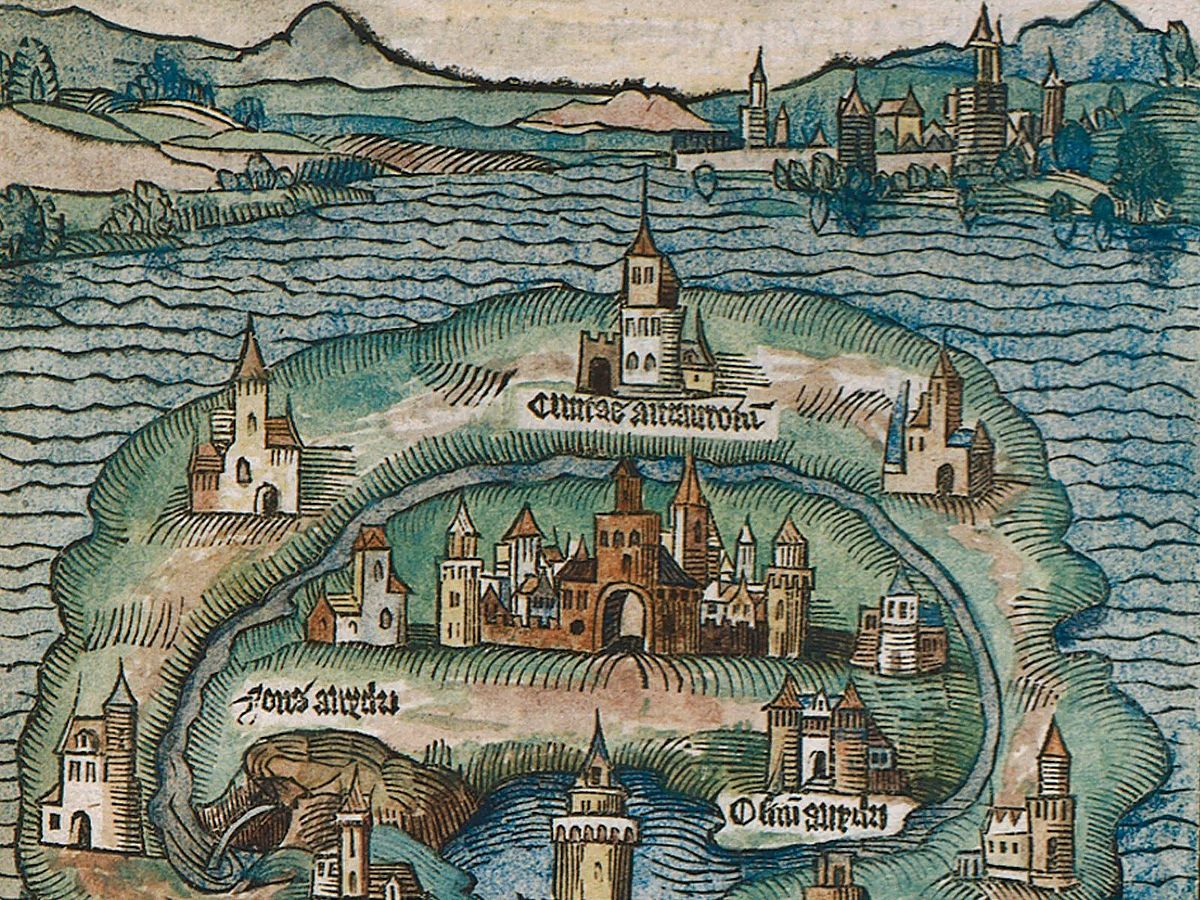 Ciuitas amaurotū
Fons anydri
Ostiū anydri